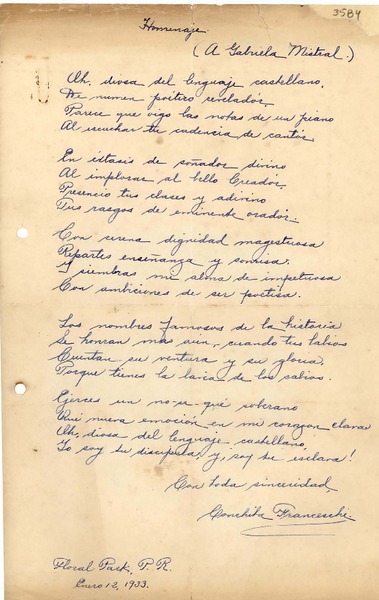 3584
Homenaje
(A Gabriela Mistral.)
Ah, diosa del lenguaje castellano,
De numen poético revelador,
Parece que oigo las notas de un piano
Al escuchar tu cadencia de cantor.
En éstasis de soñador divino
Al implorar al bello Creador,
Presencio tus clases y adivino
Tus rasgos de eminente orador.
Con serena dignidad magestuosa
Repartes enseñanza y sonrisa.
Y siembras mi alma de impetuosa
Con ambiciones de ser poetisa.
Los nombres famosos de la historia
Se honran más aún, cuando tus labios
Cuentan su ventura y su gloria.
Porque tienes la laica de los sabios.
Ejerces un no-se-qué soberano
Qué nueva emoción en mi corazón clava
Ah, diosa del lenguaje castellano,
Yo soy tu discípula y, soy tu esclava!
Con toda sinceridad,
Conchita Franceschi.
Floral Park, P. R.
Enero 12, 1933.